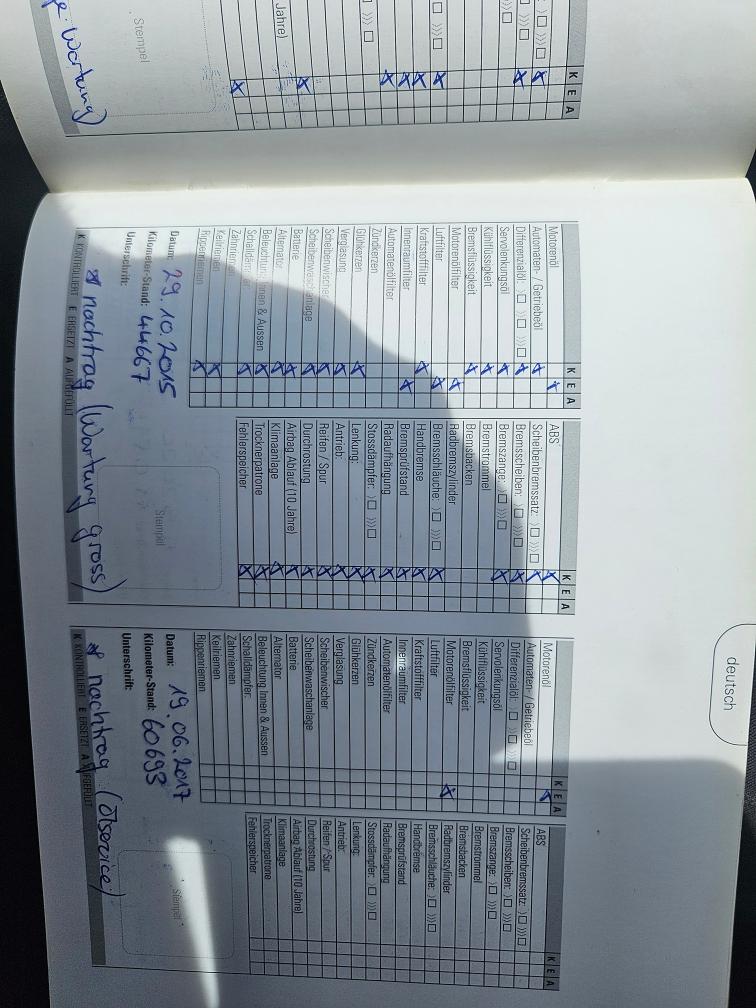 Wartung)
Stempel
Jahre)
K E A
deutsch
K E A
Motorenöl
Automaten- / Getriebeöl
Differenzialöl: 〉□ 〉〉〉□
Servolenkungsöl
Kühlflüssigkeit
Bremsflüssigkeit
Motorenölfilter
Luftfilter
Kraftstofffilter
Innenraumfilter
Automatenölfilter
Zündkerzen
Glühkerzen
Verglasung
Scheibenwischer
Scheibenwaschanlage
Batterie
Alternator
Beleuchtung Innen & Aussen
Schalldämpfer
Zahnriemen
Keilriemen
Rippenriemen
Datum: 29.10.2015
Kilometer-Stand: 44667
Unterschrift:
K KONTROLLIERT E ERSETZT A AUFGEFÜLLT
* nachtrag (Wartung gross)
K E A
ABS
Scheibenbremssatz: 〉□ 〉〉〉□
Bremsscheiben: 〉□ 〉〉〉□
Bremszange: 〉□ 〉〉〉□
Bremstrommel
Bremsbacken
Radbremszylinder
Bremsschläuche: 〉□ 〉〉〉□
Handbremse
Bremsprüfstand
Radaufhängung
Stossdämpfer: 〉□ 〉〉〉□
Lenkung:
Antrieb:
Reifen / Spur
Durchrostung
Airbag Ablauf (10 Jahre)
Klimaanlage
Trocknerpatrone
Fehlerspeicher
Stempel
K E A
Motorenöl
Automaten- / Getriebeöl
Differenzialöl: 〉□ 〉〉〉□
Servolenkungsöl
Kühlflüssigkeit
Bremsflüssigkeit
Motorenölfilter
Luftfilter
Kraftstofffilter
Innenraumfilter
Automatenölfilter
Zündkerzen
Glühkerzen
Verglasung
Scheibenwischer
Scheibenwaschanlage
Batterie
Alternator
Beleuchtung Innen & Aussen
Schalldämpfer:
Zahnriemen
Keilriemen
Rippenriemen
Datum: 19.06.2017
Kilometer-Stand: 60693
Unterschrift:
K KONTROLLIERT E ERSETZT A AUFGEFÜLLT
* nachtrag (Ölservice)
K E A
ABS
Scheibenbremssatz: 〉□ 〉〉〉□
Bremsscheiben: 〉□ 〉〉〉□
Bremszange: 〉□ 〉〉〉□
Bremstrommel
Bremsbacken
Radbremszylinder
Bremsschläuche: 〉□ 〉〉〉□
Handbremse
Bremsprüfstand
Radaufhängung
Stossdämpfer: 〉□ 〉〉〉□
Lenkung:
Antrieb:
Reifen / Spur
Durchrostung
Airbag Ablauf (10 Jahre)
Klimaanlage
Trocknerpatrone
Fehlerspeicher
Stempel